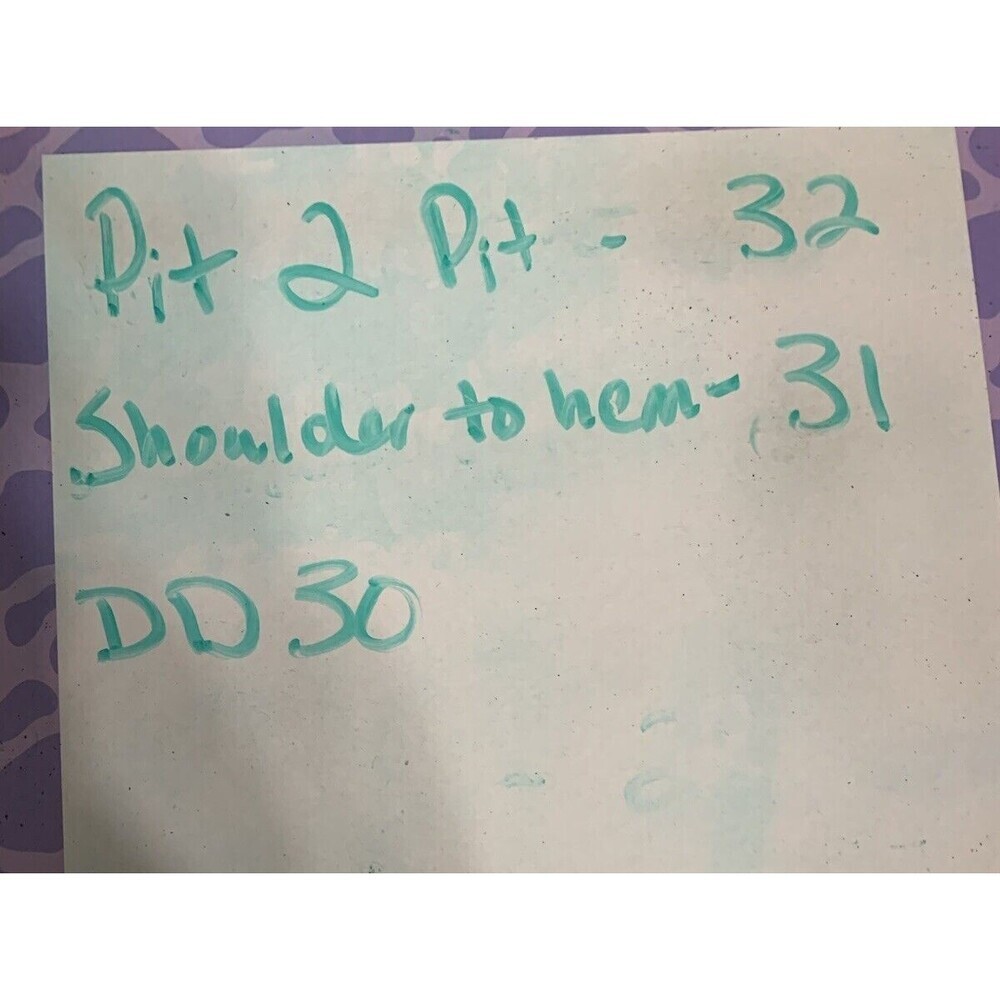 Pit 2 Pit - 32
Shoulder to hem - 31
DD30